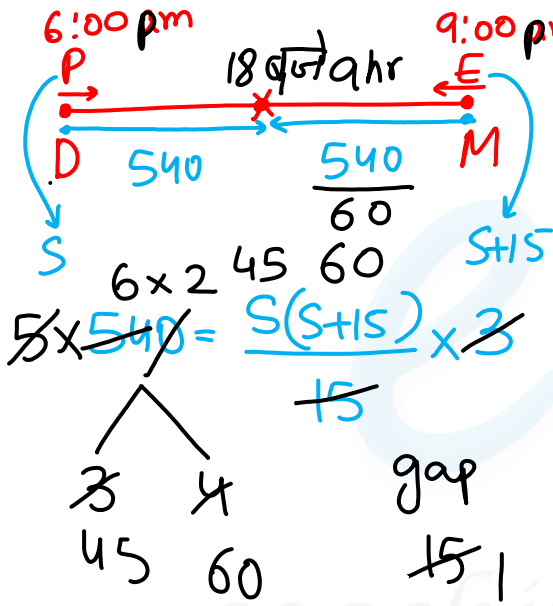 6:00 pm 9:00 pm
P 18 बजे 9hr E
D 540 540/60 M
S 45 60 S+15
6×2
5×540 = S(S+15)/15 × 3
3 4 gap
45 60 15 1